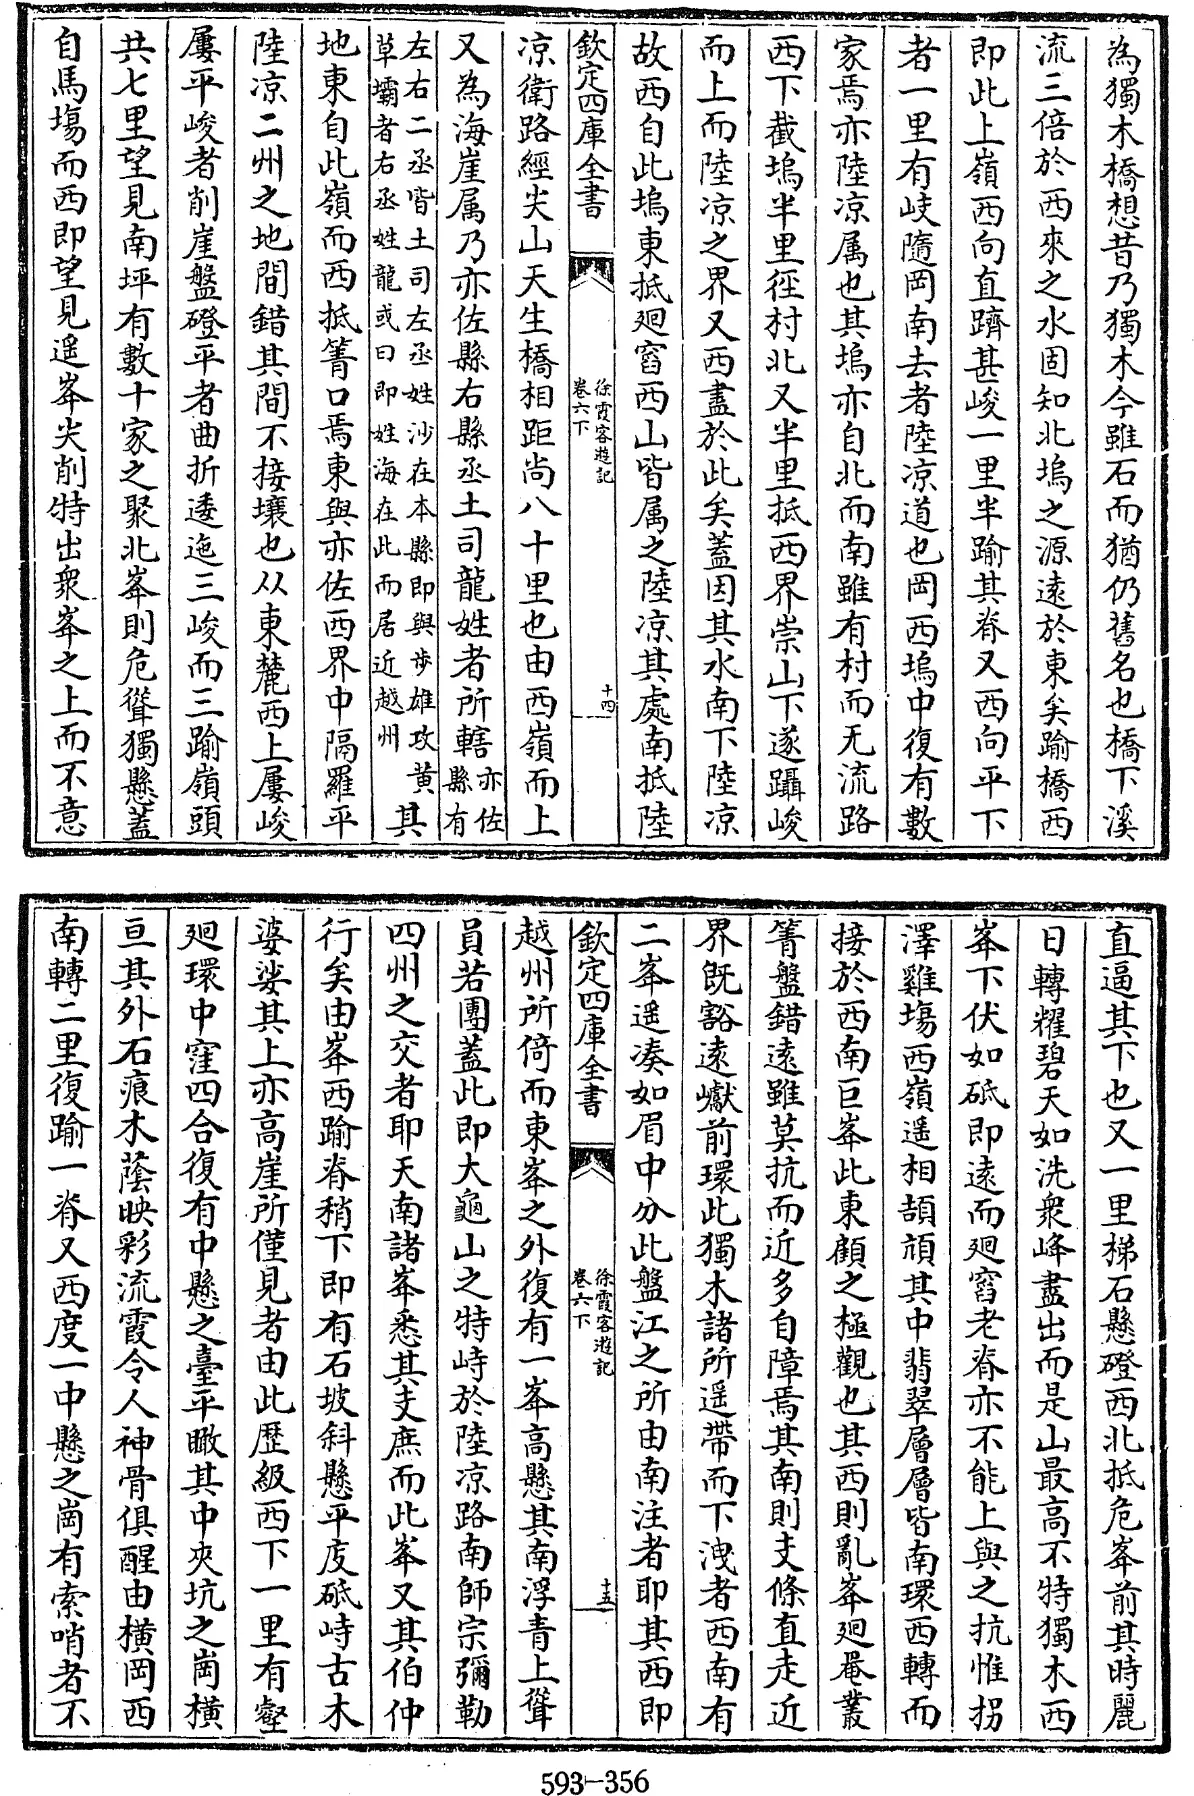 為獨木橋想昔乃獨木今雖石而猶仍舊名也橋下溪
流三倍於西來之水固知北塢之源遠於東矣踰橋西
即此上嶺西向直躋甚峻一里半踰其脊又西向平下
者一里有岐隨岡南去者陸凉道也岡西塢中復有數
家焉亦陸凉属也其塢亦自北而南雖有村而无流路
西下截塢半里徑村北又半里抵西界崇山下遂躡峻
而上而陸凉之界又西盡於此矣蓋因其水南下陸凉
故西自此塢東抵廻窞西山皆属之陸凉其處南抵陸
欽定四庫全書
徐霞客遊記
卷六下
十四
凉衛路經尖山天生橋相距尚八十里也由西嶺而上
又為海崖属乃亦佐縣右縣丞土司龍姓者所轄亦佐縣有
左右二丞皆土司左丞姓沙在本縣即與步雄攻黄
草壩者右丞姓龍或曰即姓海在此而居近越州其
地東自此嶺而西抵箐口焉東與亦佐西界中隔羅平
陸凉二州之地間錯其間不接壤也从東麓西上屢峻
屢平峻者削崖盤磴平者曲折逶迤三峻而三踰嶺頭
共七里望見南坪有數十家之聚北峯則危聳獨懸蓋
自馬塲而西即望見遥峯尖削特出衆峯之上而不意
直逼其下也又一里梯石懸磴西北抵危峯前其時麗
日轉耀碧天如洗衆峰盡出而是山最高不特獨木西
峯下伏如砥即遠而廻窞老脊亦不能上與之抗惟拐
澤雞塲西嶺遥相頡頏其中翡翠層層皆南環西轉而
接於西南巨峯此東顧之極觀也其西則亂峯廻罨叢
箐盤錯遠雖莫抗而近多自障焉其南則支條直走近
界既豁遠巘前環此獨木諸所遥帶而下洩者西南有
二峯遥湊如眉中分此盤江之所由南注者耶其西即
欽定四庫全書
徐霞客遊記
卷六下
十五
越州所倚而東峯之外復有一峯高懸其南浮青上聳
員若團蓋此即大龜山之特峙於陸凉路南師宗彌勒
四州之交者耶天南諸峯悉其支庶而此峯又其伯仲
行矣由峯西踰脊稍下即有石坡斜懸平度砥峙古木
婆娑其上亦高崖所僅見者由此歷級西下一里有壑
廻環中窪四合復有中懸之臺平瞰其中夾坑之崗橫
亘其外石痕木蔭映彩流霞令人神骨俱醒由橫岡西
南轉二里復踰一脊又西度一中懸之崗有索哨者不
593-356